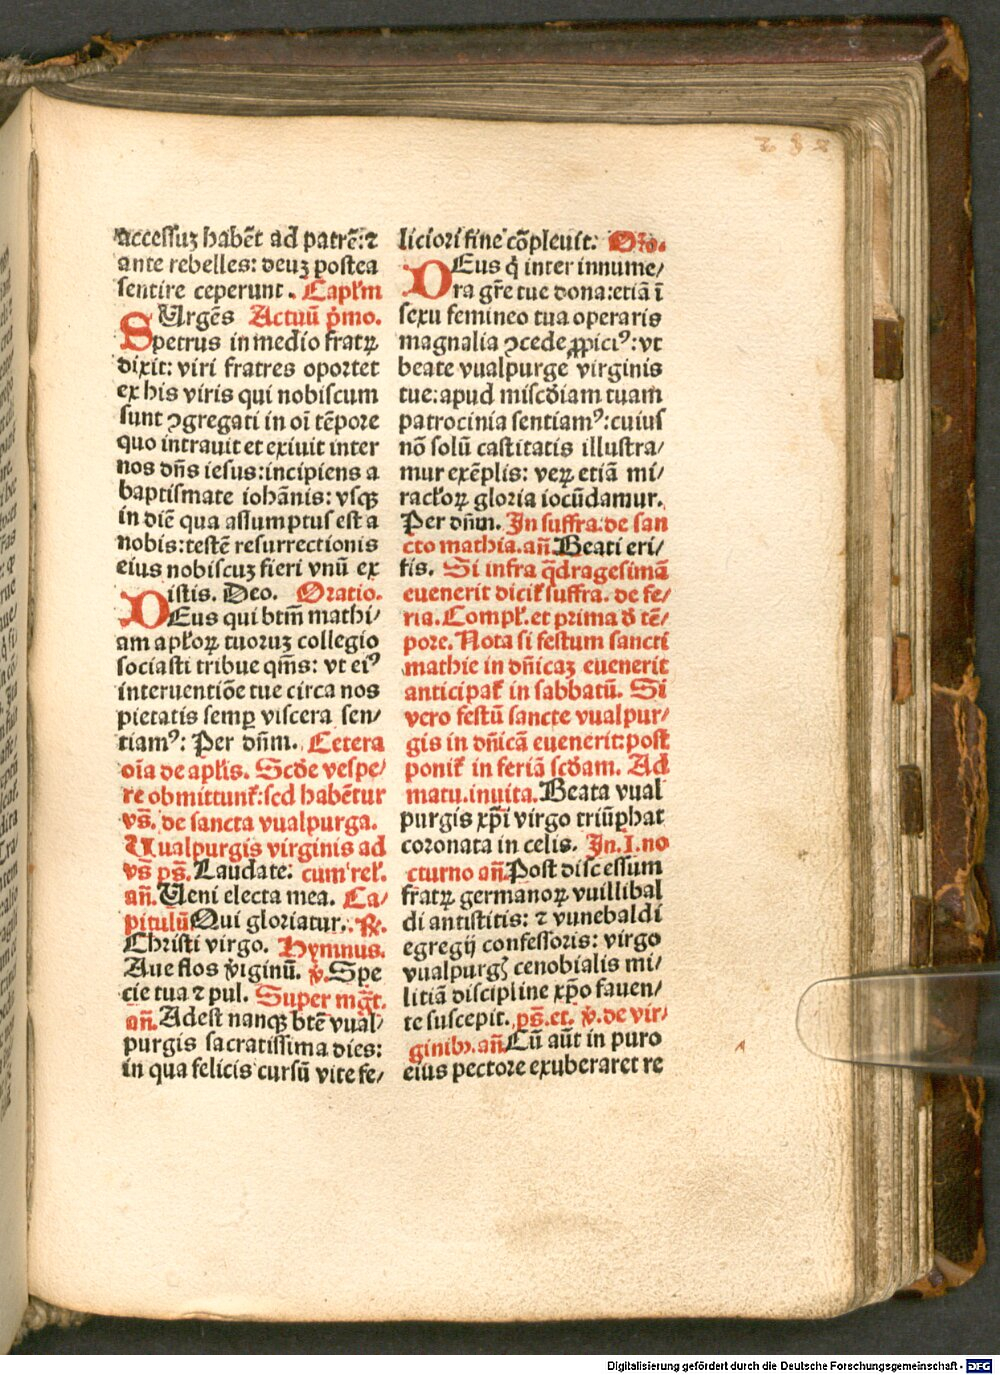 accessuꝫ habēt ad patrē: ⁊
ante rebelles: deuꝫ postea
sentire ceperunt. Capł'm
SUrgēs Actuū p̄mo.
petrus in medio fratꝝ
dixit: viri fratres oportet
ex his viris qui nobiscum
sunt ↄgregati in oī tēpore
quo intrauit et exiuit inter
nos dn̄s iesus: incipiens a
baptismate iohānis: vsqꝫ
in diē qua assumptus est a
nobis: testē resurrectionis
eius nobiscuꝫ fieri vnū ex
istis. Deo. Oratio.
DEus qui btm̄ mathi/
am apłoꝝ tuoruꝫ collegio
sociasti tribue qm̄s: vt eiꝰ
interuentiōe tue circa nos
pietatis semꝑ viscera sen/
tiamꝰ: Per dn̄m. Cetera
oīa de apłis. Scd̄e vespe/
re obmittunt᷑: sed habētur
vs̄. de sancta vualpurga.
Uualpurgis virginis ad
vs̄ ps̄. Laudate: cum rel᷑.
an̄. Ueni electa mea. Ca/
pitulū Qui gloriatur. ꝶ.
Christi virgo. Hymnus.
Aue flos v̄iginū. ꝟ. Spe
cie tua ⁊ pul. Super mg̅t.
an̄. Adest nanqꝫ btē vual/
purgis sacratissima dies:
in qua felicis cursū vite fe/
liciori fine cōpleuit. Or̄o.
DEus q̄ inter innume/
ra gr̄e tue dona: etiā ī
sexu femineo tua operaris
magnalia ↄcede ꝓpiciꝰ: vt
beate vualpurge virginis
tue: apud misc̄diam tuam
patrocinia sentiamꝰ: cuius
nō solū castitatis illustra/
mur exēplis: veꝝ etiā mi/
racłoꝝ gloria iocūdamur.
Per dn̄m. In suffra: de san
cto mathia. an̄. Beati eri/
tis. Si infra q̄dragesimā
euenerit dicit᷑ suffra. de fe/
ria. Compł. et prima d̄ tē/
pore. Nota si festum sancti
mathie in dn̄icaꝫ euenerit
anticipat᷑ in sabbatū. Si
vero festū sancte vualpur/
gis in dn̄icā euenerit: post
ponit᷑ in feriā scd̄am. Ad
matu. inuita. Beata vual
purgis xp̄i virgo triūphat
coronata in celis. In. I. no
cturno an̄. Post discessum
fratꝝ germanoꝝ vuillibal
di antistitis: ⁊ vunebaldi
egregij confessoris: virgo
vualpurgꝭ cenobialis mi/
litiā discipline xp̄o fauen/
te suscepit. ps̄. et. ꝟ. de vir/
ginibꝫ. an̄. Cū aūt in puro
eius pectore exuberaret re
Digitalisierung gefördert durch die Deutsche Forschungsgemeinschaft - DFG